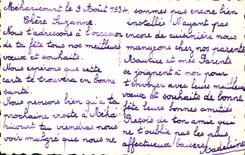 Méharicourt le 9 Août 1934.
Chère Suzanne.
Nous t'adressons à l'occasion
de ta fête tous nos meilleurs
vœux et souhaits.
Nous pensions que cette
carte te trouvera en bonne
santé.
Nous pensons bien qu'à ta
prochaine visite à Méha
ricourt tu viendras nous
voir malgré que nous ne
sommes pas encore bien
installés. N'ayant pas
encore de cuisinière nous
mangeons chez nos parents
Maurice et mes Parents
se joignent à moi pour
t'envoyer avec leurs meilleurs
vœux et souhaits de bonne
fête leurs bonne amitiés
Reçois de ton amie qui
ne t'oublie pas les plus
affectueux baisers